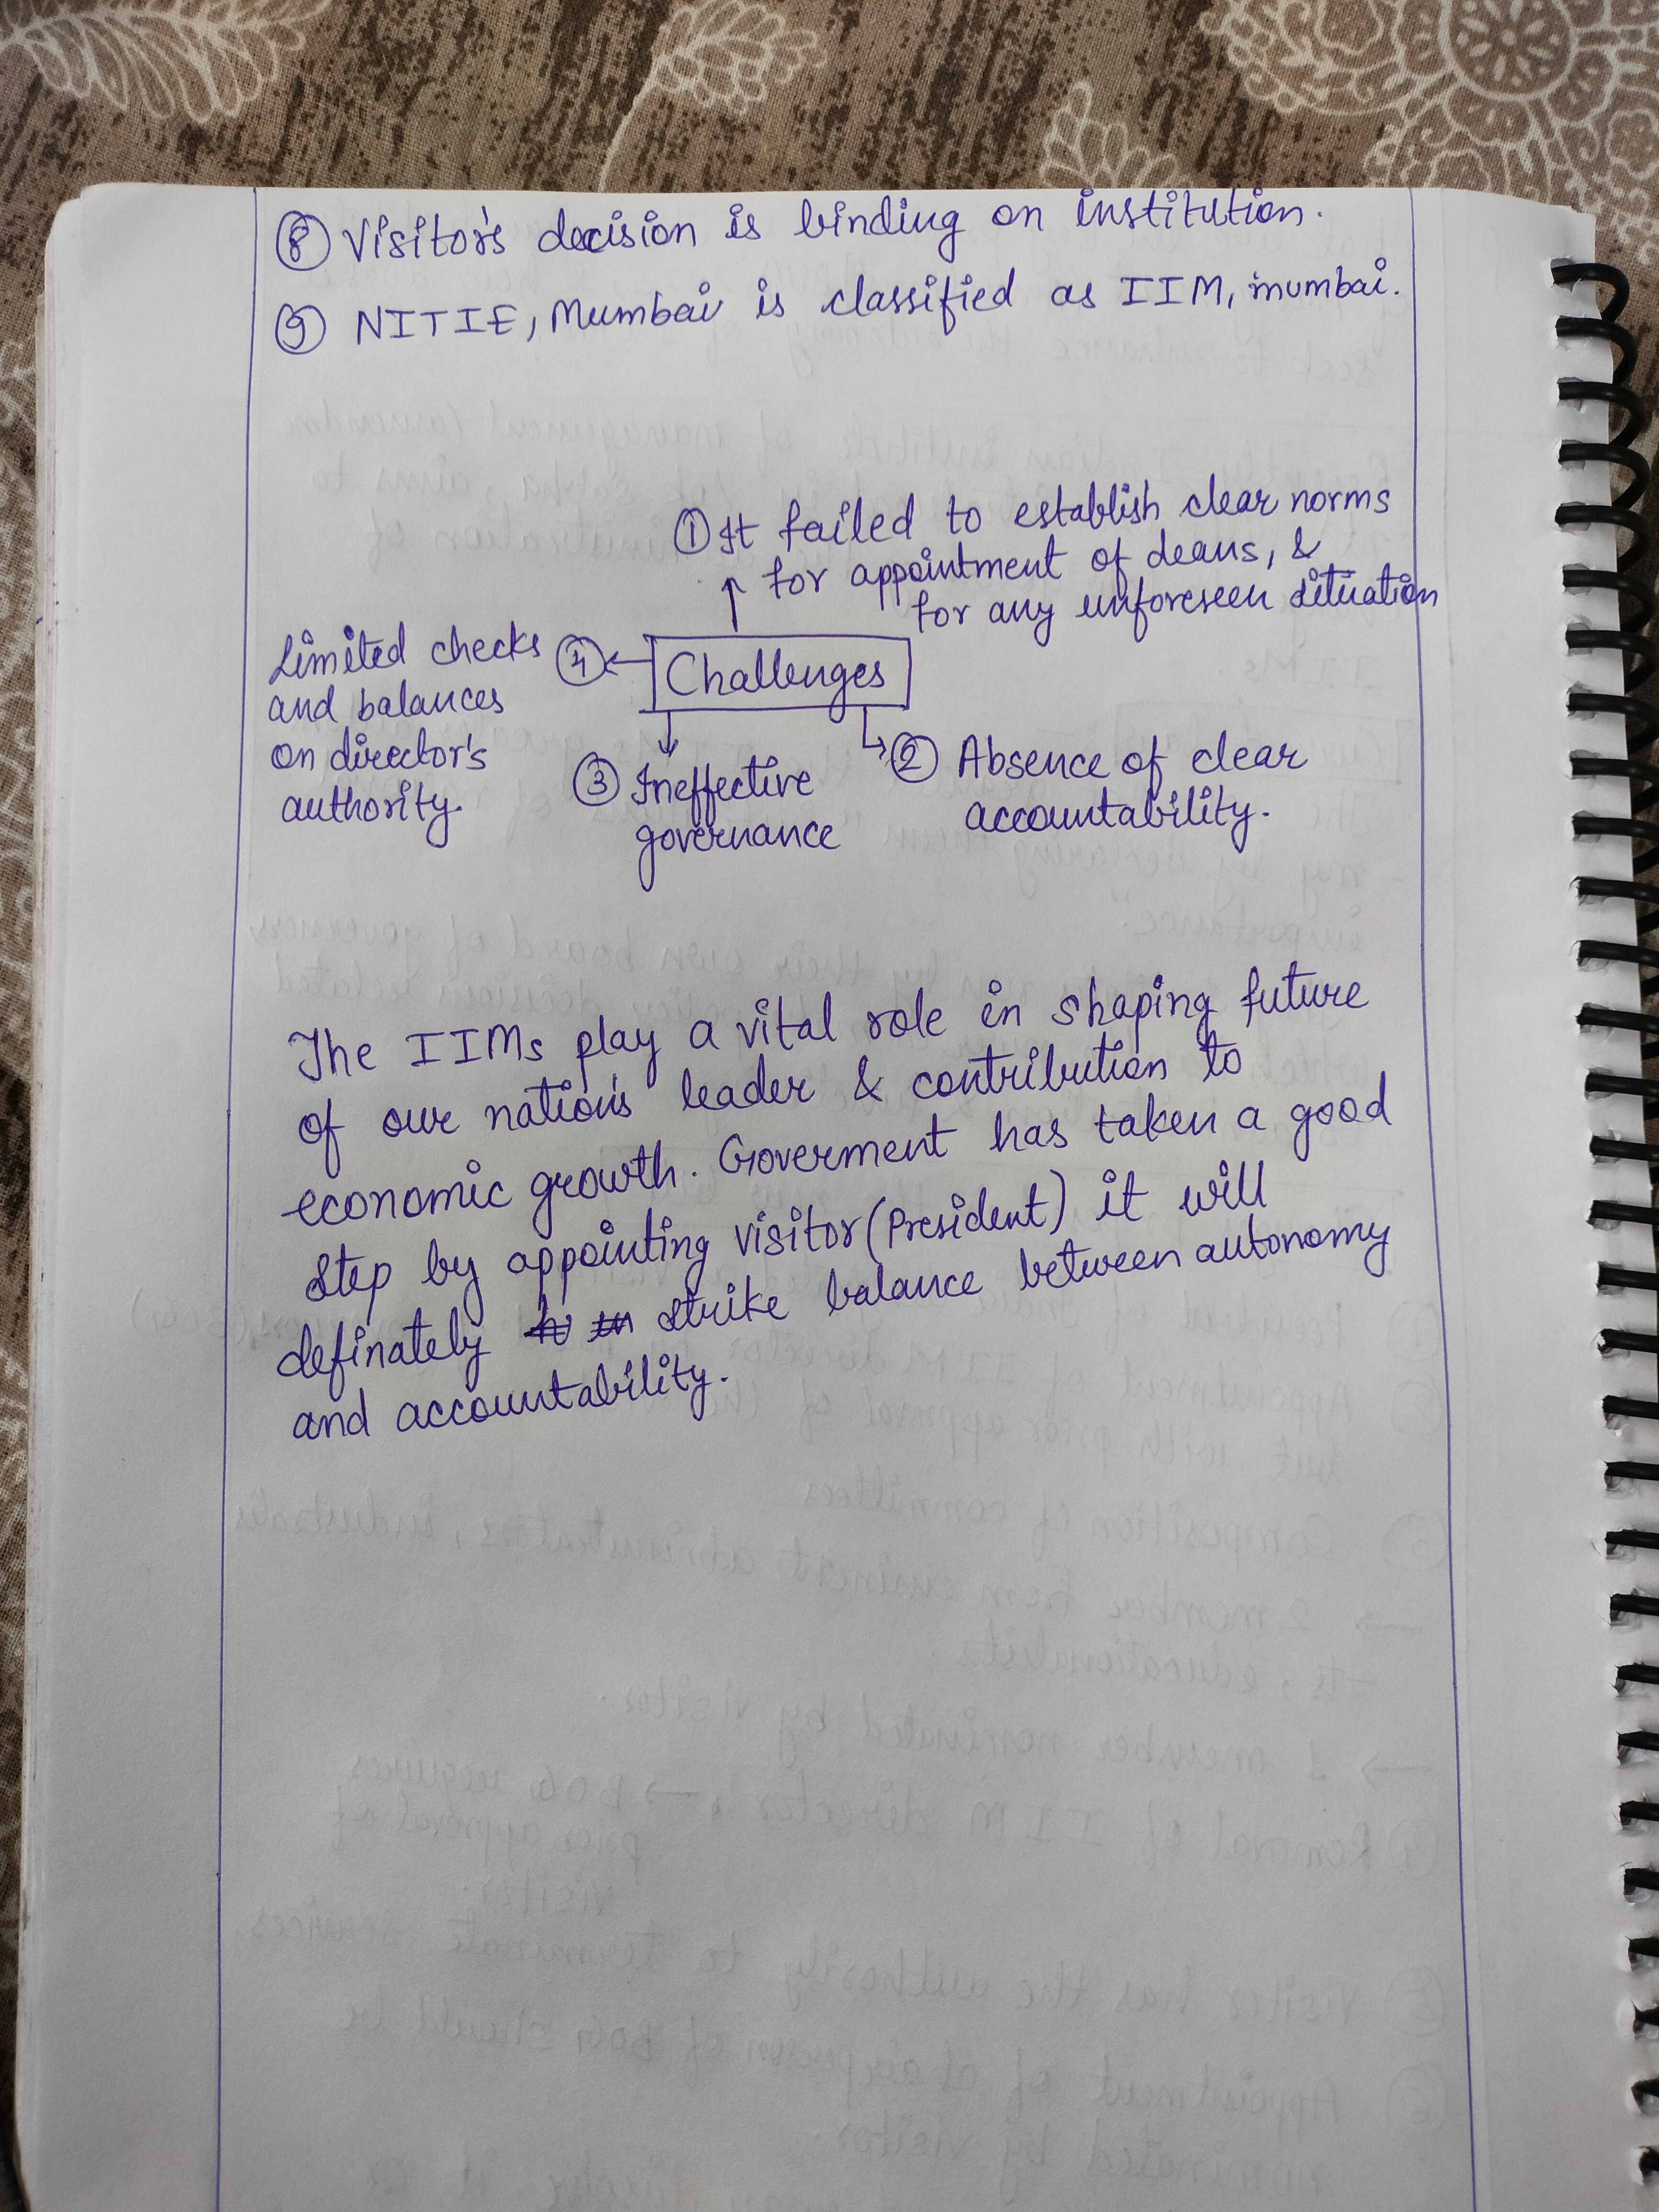 ⑧ Visitor's decision is binding on institution.
⑨ NITIE, Mumbai is classified as IIM, mumbai.
① It failed to establish clear norms
for appointment of deans, &
for any unforeseen situation
Challenges
② Absence of clear
accountability.
③ Ineffective
governance
④ Limited checks
and balances
on director's
authority.
The IIMs play a vital role in shaping future
of our nation's leader & contribution to
economic growth. Goverment has taken a good
step by appointing visitor (President) it will
definately strike balance between autonomy
and accountability.